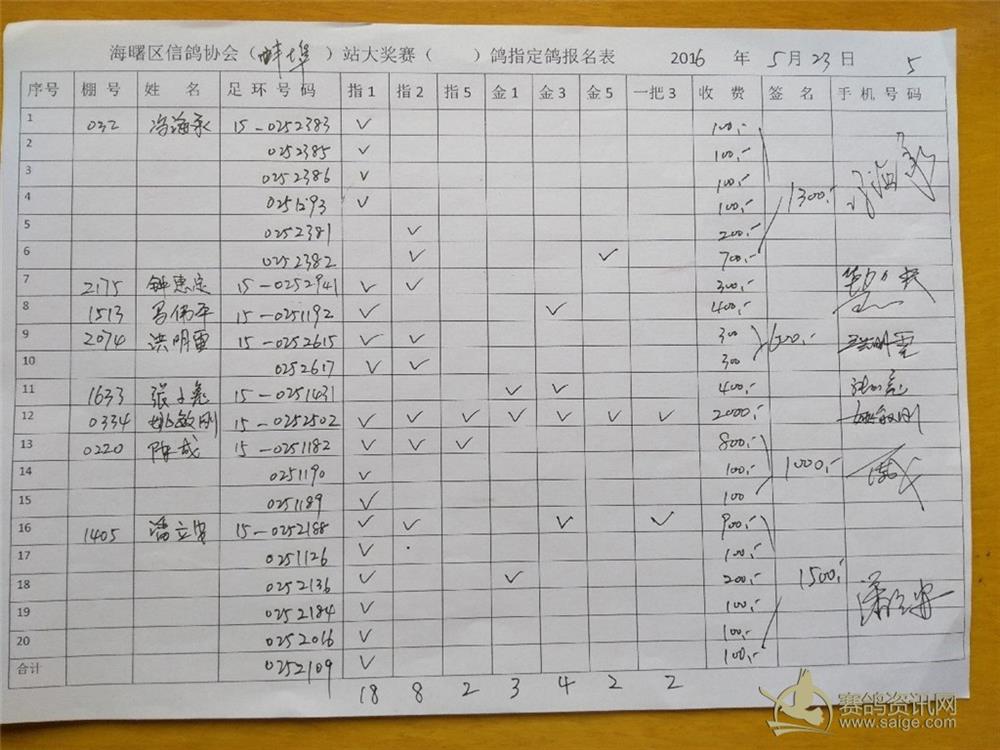 海曙区信鸽协会（蚌埠）站大奖赛（　）鸽指定鸽报名表 2016 年 5月23日 5
序号 棚号 姓名 足环号码 指1 指2 指5 金1 金3 金5 一把3 收费 签名 手机号码
1 032 冯海承 15-0252383 ✓ 100,-
2 0252385 ✓ 100,-
3 0252386 ✓ 100,-
4 ✓ 100,- 1300,-
5 0252381 ✓ 200,-
6 0252382 ✓ ✓ 700,-
7 2175 钟惠定 15-0252941 ✓ ✓ 300,-
8 1513 马伟平 15-0251192 ✓ ✓ 400,-
9 2074 洪明雷 15-0252615 ✓ ✓ 300 600,- 洪明雷
10 0252617 ✓ ✓ 300
11 1633 张 15-0251431 ✓ ✓ 400,-
12 0334 姚敏刚 15-0252502 ✓ ✓ ✓ ✓ ✓ ✓ ✓ 2000,- 姚敏刚
13 0220 陈成 15-0251182 ✓ ✓ ✓ 800,-
14 0251190 ✓ 100,- 1000,-
15 0251189 ✓ 100
16 1405 潘立安 15-0252188 ✓ ✓ ✓ ✓ 900,-
17 0251126 ✓ 100,-
18 0252136 ✓ ✓ 200,- 1500,-
19 0252184 ✓ 100,-
20 0252016 ✓ 100,-
合计 0252109 ✓ 100,-
18 8 2 3 4 2 2
赛鸽资讯网
www.saige.com